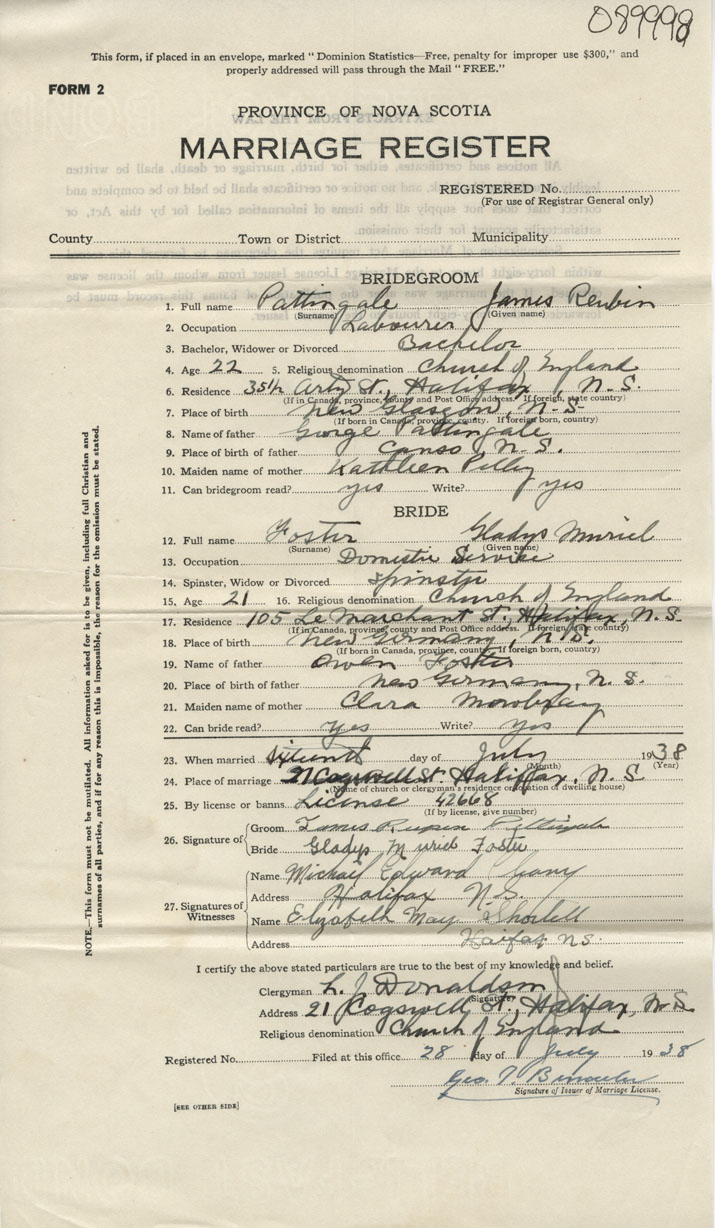 089998
This form, if placed in an envelope, marked "Dominion Statistics—Free, penalty for improper use $300," and
properly addressed will pass through the Mail "FREE."
FORM 2
PROVINCE OF NOVA SCOTIA
MARRIAGE REGISTER
REGISTERED No.
(For use of Registrar General only)
County Town or District Municipality
BRIDEGROOM
1. Full name Pattingale James Reubin
(Surname) (Given name)
2. Occupation Labourer
3. Bachelor, Widower or Divorced Bachelor
4. Age 22 5. Religious denomination Church of England
6. Residence 35½ Arty St., Halifax, N. S.
(If in Canada, province, county and Post Office address. If foreign, state country)
7. Place of birth New Glasgow, N. S.
(If born in Canada, province, county. If foreign born, country)
8. Name of father George Pattingale
9. Place of birth of father Canso N. S.
10. Maiden name of mother Kathleen
11. Can bridegroom read? yes Write? yes
BRIDE
12. Full name Foster Gladys Muriel
(Surname) (Given name)
13. Occupation Domestic Service
14. Spinster, Widow or Divorced Spinster
15. Age 21 16. Religious denomination Church of England
17. Residence 105 Le Marchant St., Halifax, N. S.
(If in Canada, province, county and Post Office address. If foreign, state country)
18. Place of birth New Germany, N. S.
(If born in Canada, province, county. If foreign born, country)
19. Name of father Owen Foster
20. Place of birth of father New Germany, N. S.
21. Maiden name of mother Clara
22. Can bride read? Yes Write? Yes
23. When married day of July 1938
(Month) (Year)
24. Place of marriage 21 Cogswell St. Halifax, N. S
(Name of church or clergyman's residence or location of dwelling house)
25. By license or banns License 42668
(If by license, give number)
26. Signature of
Groom James
Bride Gladys Muriel Foster
27. Signatures of Witnesses
Name Edward
Address Halifax N.S.
Name Elizabeth May
Address Halifax NS.
I certify the above stated particulars are true to the best of my knowledge and belief.
Clergyman L. J. Donaldson
(Signature)
Address 21 Cogswell St., Halifax, N. S
Religious denomination Church of England
Registered No. Filed at this office 28 day of July 1938
Geo.
Signature of Issuer of Marriage License.
[SEE OTHER SIDE]
NOTE.—This form must not be mutilated. All information asked for is to be given, including full Christian and
surnames of all parties, and if for any reason this is impossible, the reason for the omission must be stated.